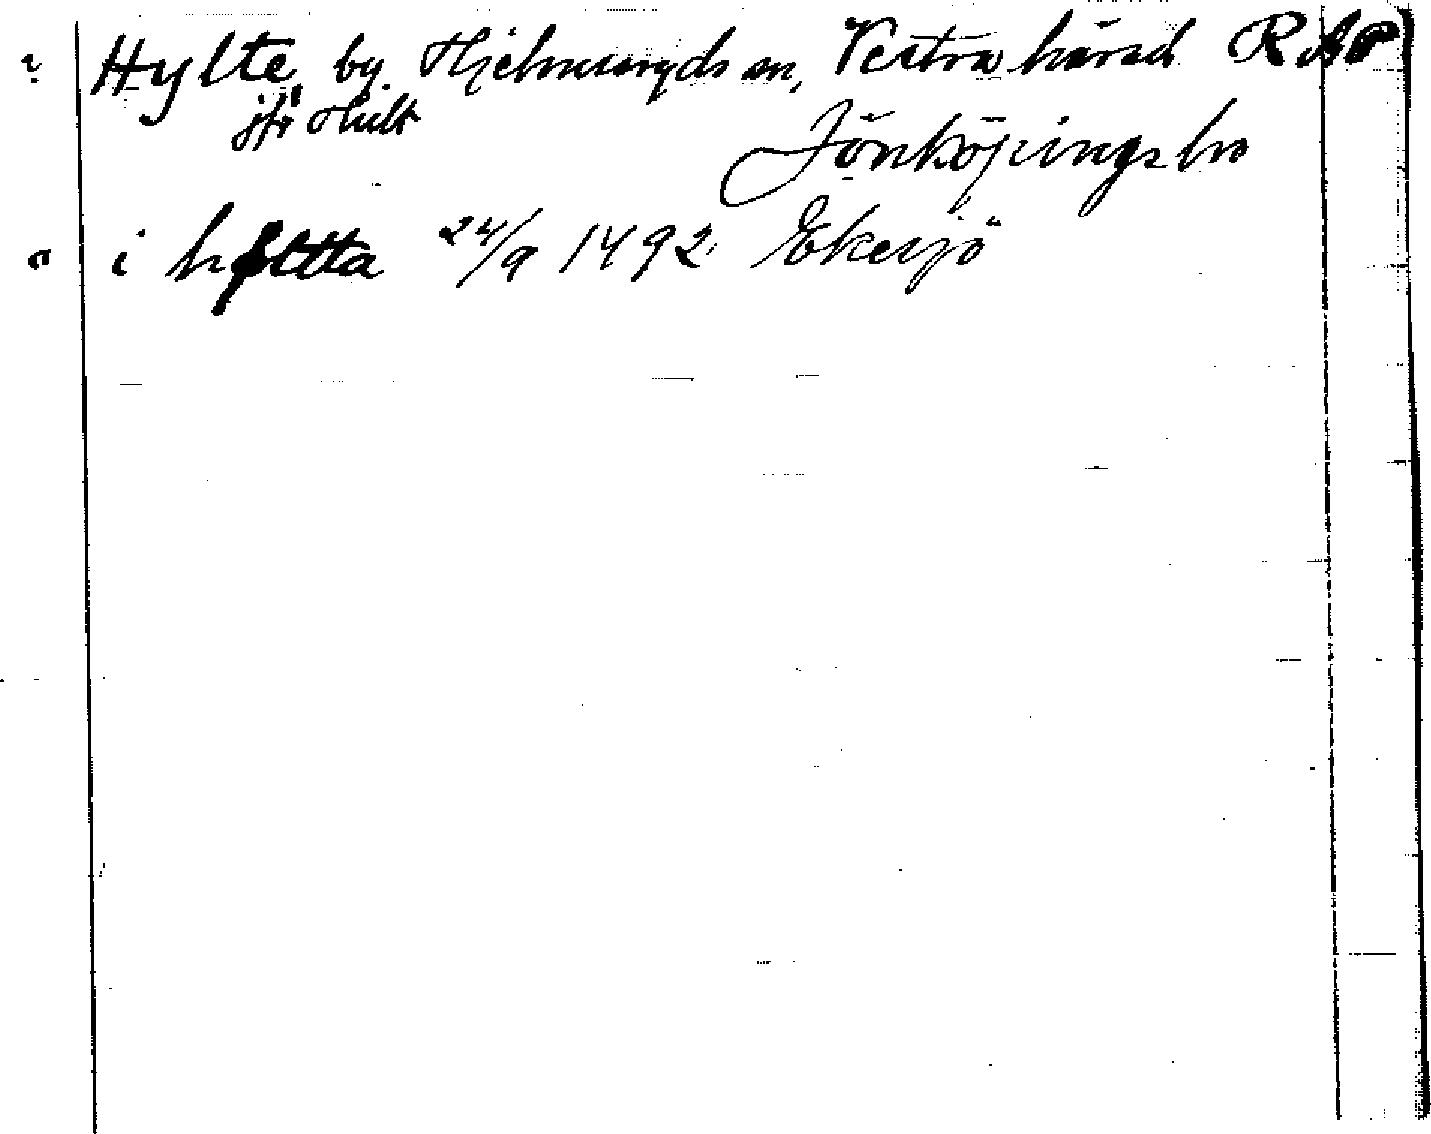 Hylte, by. Hjelmseryds sn, Vestra härad RAP
jfr Hult
Jönköpings län
i hyltta 24/9 1492 Ekesjö